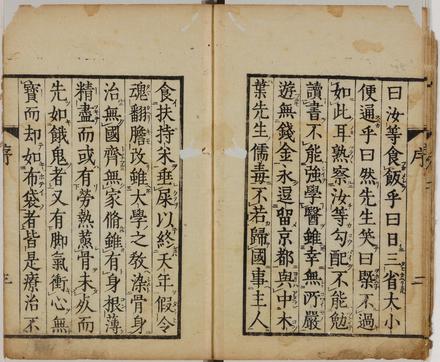 曰汝等食飯乎曰日三省大小
便通乎曰然先生英曰緊不過
如此耳熟察汝等勾配不能勉
讀書不能強學醫雖幸無所嚴
遊無錢金永逗留京都與中木
葉先生儒毒不若歸國事主人
序
二
食扶持米垂屎以終天年假令
魂翻膽改雖大學之敎滲骨身
治無國齊無家脩雖有身根薄
精盡而或有勞熱蒸骨未灸而
先如餓鬼者又有脚氣衝心無
寳而却如布袋者皆是療治不
序
三